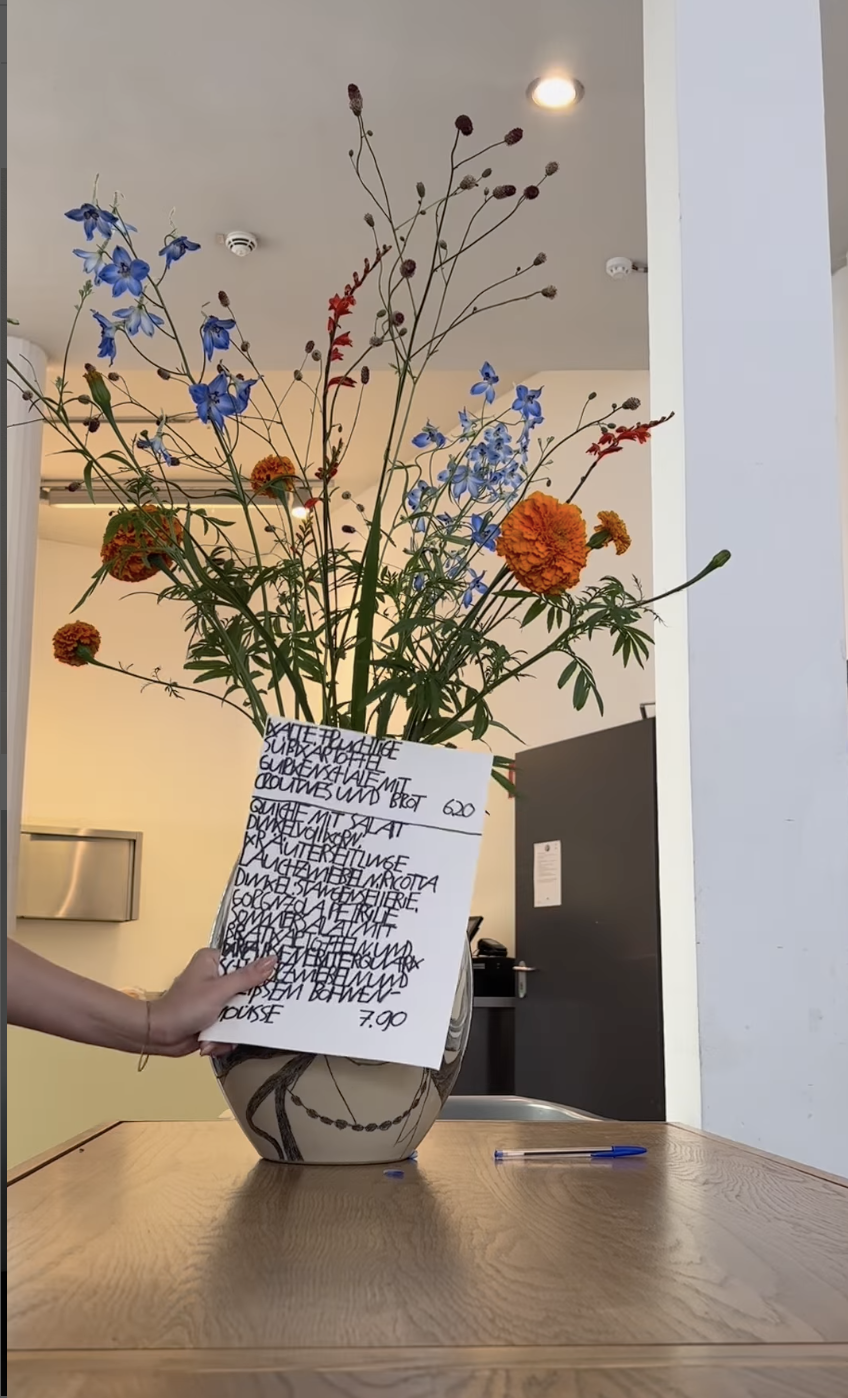 KALTE FRUCHTIGE
SÜßKARTOFFEL
GURKENSCHALE MIT
CROUTNES UND BROT 6.20
QUICHE MIT SALAT
DINKELVOLLKORN,
KRÄUTERSEITLINGE
LAUCHZWIEBELN, RICOTTA
DINKEL, STANGENSELLERIE,
GORGNZOLA, PETRSILIE
SOMMERSALAT MIT
BRATKARTOFFELN UND
KRÄUTERQUARK
ZWIEBELN UND
BOHNEN-
MOUSSE 7.90